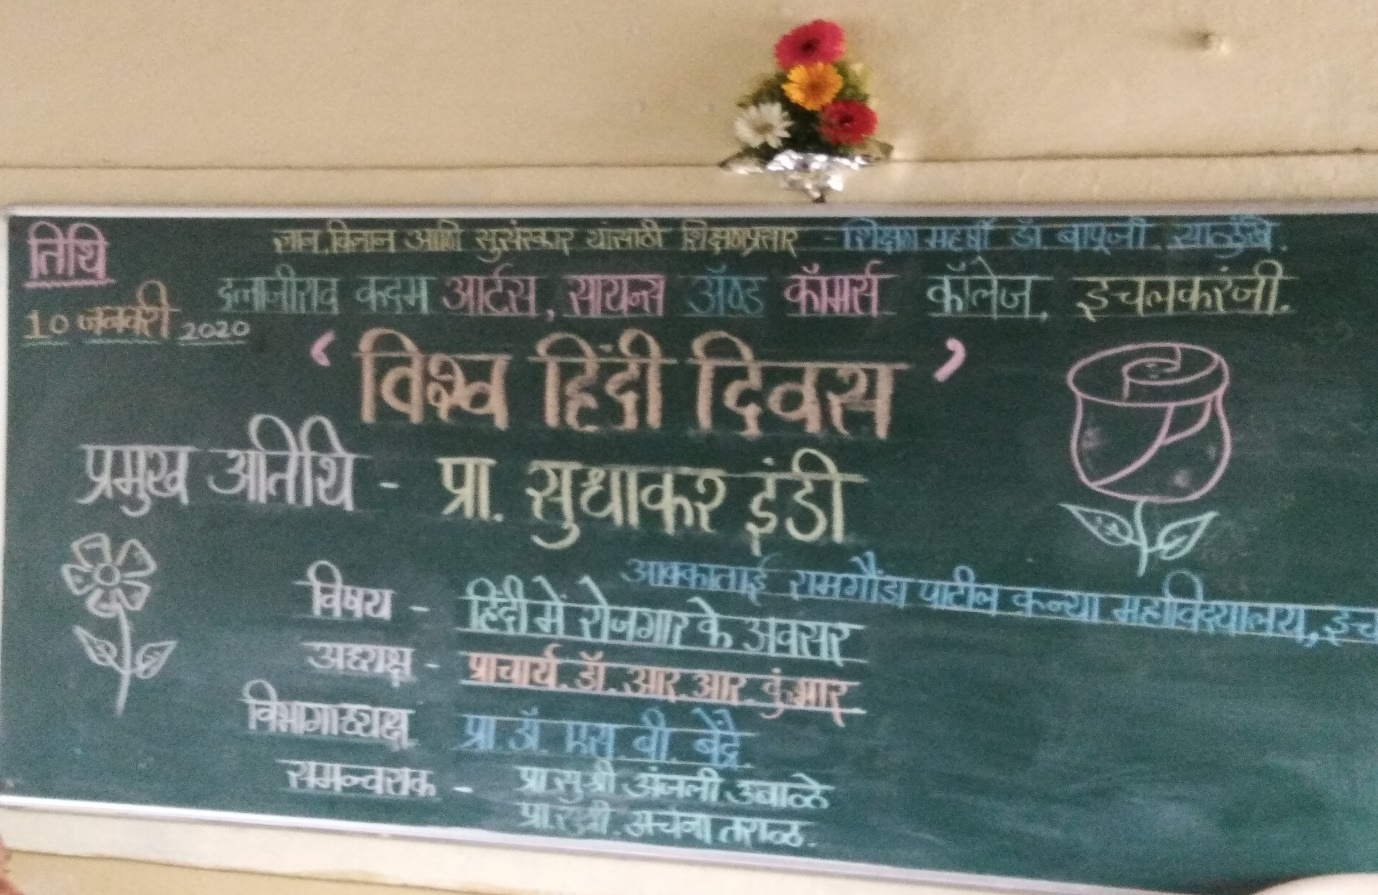 तिथि
10 जनवरी 2020
ज्ञान, विज्ञान आणि सुसंस्कार यांसाठी शिक्षणप्रसार - शिक्षण महर्षी डॉ. बापूजी साळुंखे.
दत्ताजीराव कदम आर्टस, सायन्स अ‍ॅण्ड कॉमर्स कॉलेज, इचलकरंजी.
‘विश्व हिंदी दिवस’
प्रमुख अतिथि - प्रा. सुधाकर इंडी
आक्काताई रामगौंडा पाटील कन्या महाविद्यालय, इच
विषय - हिंदी में रोजगार के अवसर
अध्यक्ष - प्राचार्य. डॉ. आर. आर. कुंभार
विभागाध्यक्ष प्रा. डॉ. एस. बी. बेंद्रे
समन्वयक - प्रा. सुश्री अंजली उबाळे
प्रा. सुश्री. अर्चना तराळ.